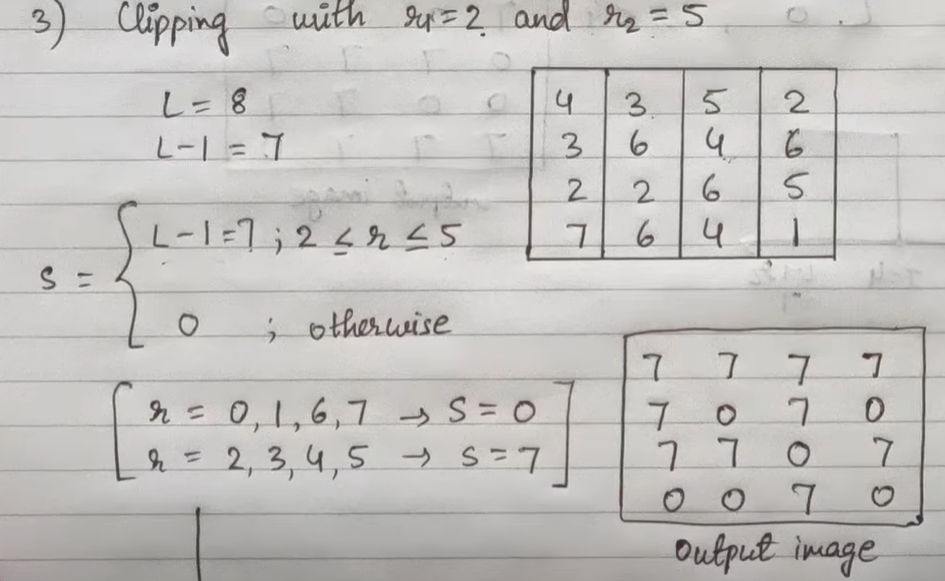 3) Clipping with r1=2 and r2=5
L = 8
L-1 = 7
4 3 5 2
3 6 4 6
2 2 6 5
7 6 4 1
L-1=7 ; 2 ≤ r ≤ 5
s =
0 ; otherwise
r = 0,1,6,7 → S=0
r = 2,3,4,5 → S=7
7 7 7 7
7 0 7 0
7 7 0 7
0 0 7 0
output image